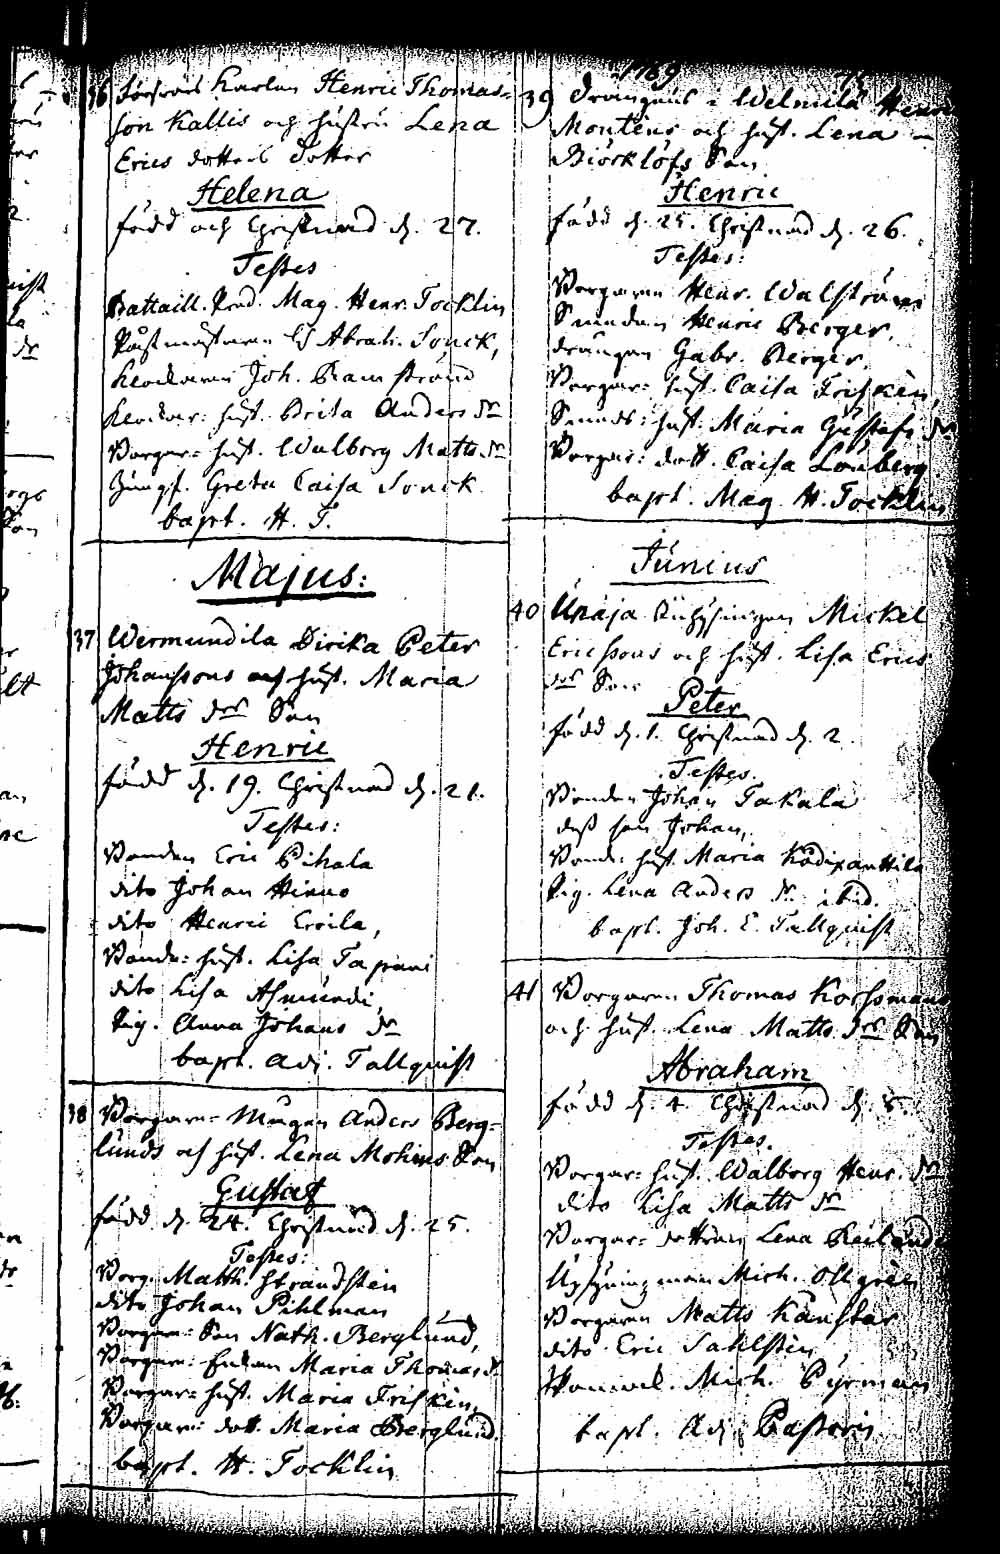 36 Försvars Karlen Henric Thomas-
son Kallis och hustru Lena
Erics dotters dotter
Helena
född och Christnad d. 27.
Testes
Battaill. Pred. Mag. Henr. Tocklin
Påstmästaren Abrah. Sonck,
Klockaren Joh. Ramstrand
Klockar: hust. Brita Anders dr
Borgar- hust. Walborg Matts dr
Jungf. Greta Caisa Sonck
bapt. H. T.
Majus:
37 Wermundila Dirika Peter
Johanssons och hust. Maria
Matts drs Son
Henric
född d. 19. Christnad d. 21.
Testes:
Bonden Eric Pihala
dito Johan Hinno
dito Henric Ercila,
Bond: hust. Lisa Tapani
dito Lisa Asmundi,
Pig. Anna Johans dr
bapt. Adj. Tallquist
38 Borgaren- Anders Berg-
lunds och hust. Lena Mohms Son
Gustaf
född d. 24. Christnad d. 25.
Testes:
Borg. Matth. Strandsten
dito Johan Pihlman
Borgar: Son Nath. Berglund,
Borgar: Enkan Maria Thomas dr
Borgar- hust. Maria Friskin,
Borgar: dott. Maria Berglund.
bapt. H. Tocklin
1769
39 Drängens i Welmilä Henric
Monténs och hust. Lena
Biörklöfs Son
Henric
född d. 25. Christnad d. 26.
Testes:
Borgaren Henr. Walström
Smeden Henric Berger,
drängen Gabr. Berger,
Borgar: hust. Caisa Friskin,
Smeds: hust. Maria Gustafs dr
Borgar: dott. Caisa Lonberg
bapt. Mag. H. Tocklin
Junius
40 Unaja Mickel
Ericssons och hust. Lisa Erics
drs Son
Peter
född d. 1. Christnad d. 2.
Testes.
Bonden Johan Takala
dess son Johan,
Bond: hust. Maria Kodixanttila
Pig. Lena Anders dr ibid.
bapt. Joh. E. Tallquist
41 Borgaren Thomas Korsmans
och hust. Lena Matts drs Son
Abraham
född d. 4. Christnad d. 5.
Testes.
Borgar: hust. Walborg Henr. dr
dito Lisa Matts dr
Borgar- dottren Lena
Mich. Ollgren
Borgaren Matts
dito Eric Sahlsten,
Mich. Pyrman
bapt. Adj. Pastoris